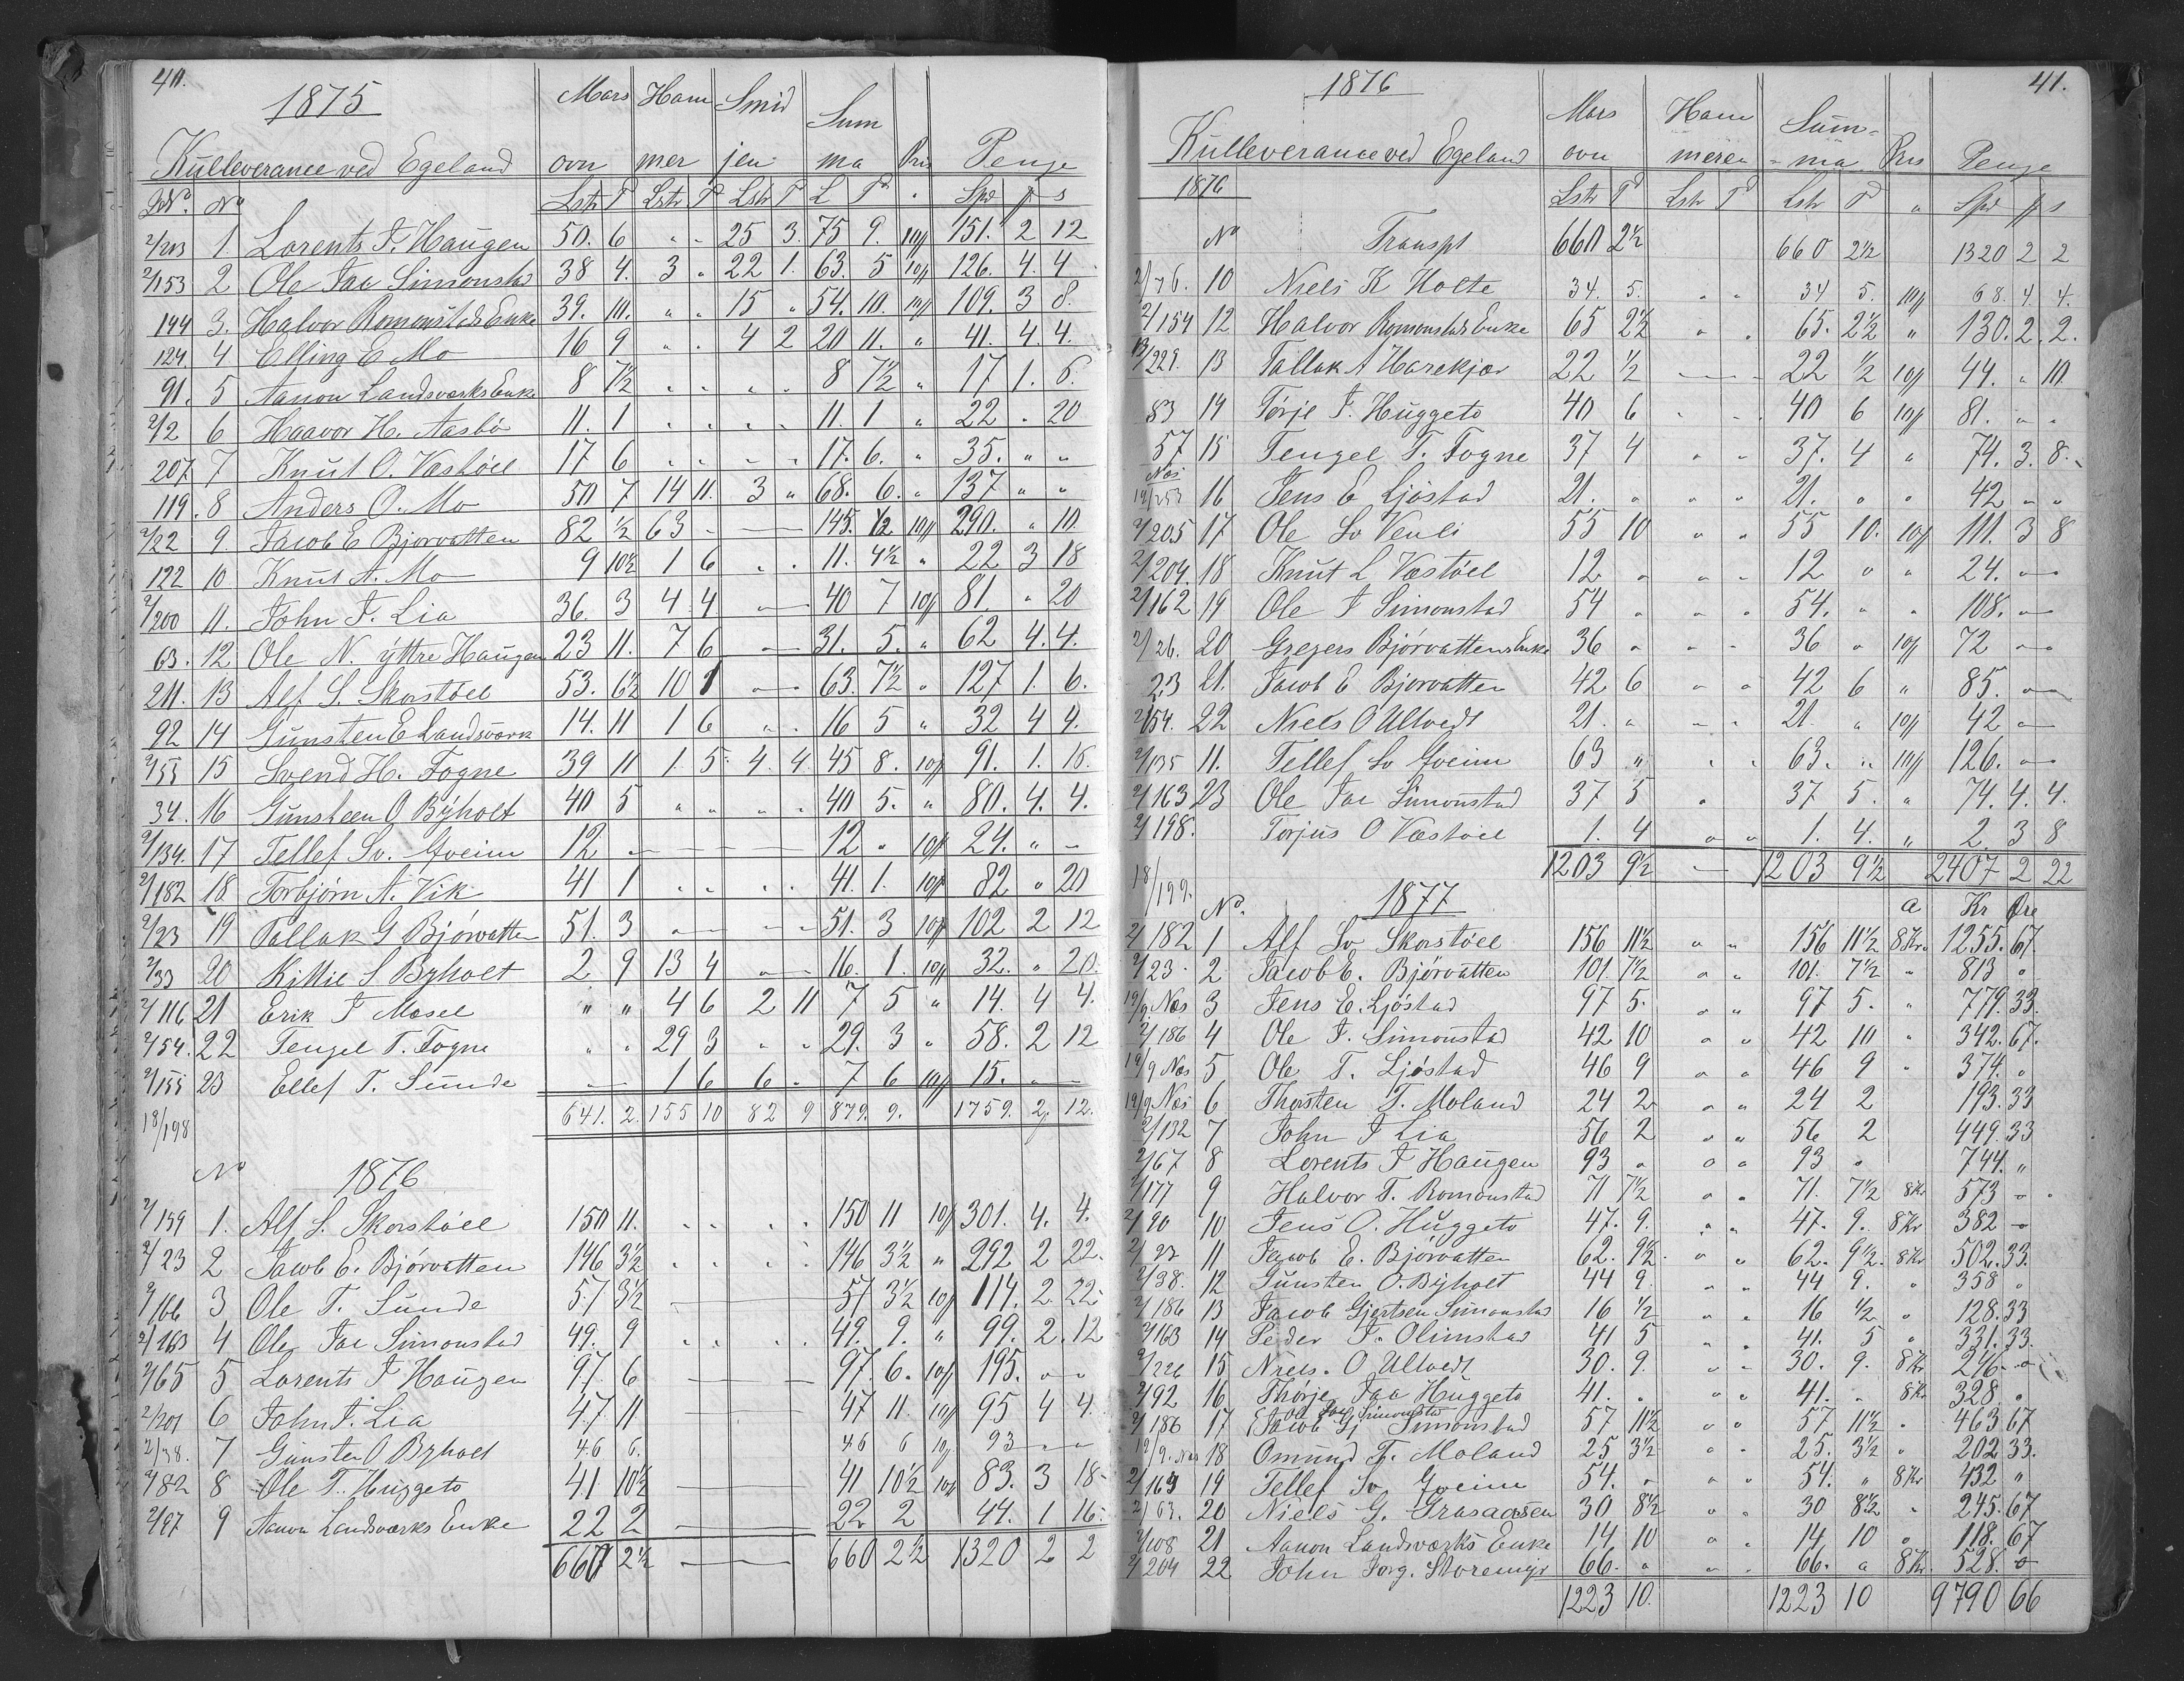 40.
1875
Mars Ham Smid Sum
Kulleverance ved Egeland ovn mer jen ma Pris Penge
No. No Lstr T Lstr T Lstr T L T Spd ß s
2/203 1. Lorents J. Haugen 50. 6 " " 25 3. 75 9. 10ß 151. 2 12
2/153 2 Ole Jaa Simonstad 38 4. 3 " 22 1. 63. 5 10ß 126. 4. 4
144 3. Halvor Romonstads Enke 39. 10. " " 15 " 54. 10. 10ß 109. 3 8.
124. 4 Elling E Mo 16 9 " " 4 2 20 11. " 41. 4. 4.
91. 5 Aanon Landsværks Enke 8 7½ " " " " 8 7½ " 17 1. 6.
2/2 6 Haavor H. Aasbö 11. 1 " " " " 11. 1 " 22 " 20
207. 7 Knut O. Væstöel 17 6 " " " " 17. 6. " 35. " "
119. 8 Anders O. Mo 50 7 14 11. 3 " 68. 6. " 137 " "
2/22 9. Jacob E Bjorvatten 82 ½ 63 - — 145. ½ 10ß 290. " 10.
122 10 Knut A. Mo 9 10½ 1 6 " " 11. 4½ " 22 3 18
2/200 11. John J. Lia 36. 3 4 4 — 40 7 10ß 81. " 20
63. 12 Ole N. yttre Haugen 23 11. 7 6 — 31. 5. " 62 4. 4.
211. 13 Alf S. Skorstöel 53. 6½ 10 1 — 63. 7½ " 127 1. 6.
92 14 Gunsten E Landsværk 14. 11 1 6 " " 16 5 " 32 4 4.
2/55 15 Svend H. Fogne 39 11 1. 5. 4. 4. 45 8. 10ß 91. 1. 16.
34. 16 Gunsteen O Byholt 40 5 " " " " 40 5. " 80. 4. 4.
2/134. 17 Tellef Sv. Gveim 12 — 12 " 10ß 24. " "
2/182 18 Torbjørn A. Vik 41 1 " " " " 41. 1. 10ß 82 " 20
2/23 19 Tallak G Bjørvatten 51. 3 — — 51. 3 10ß 102 2 12
2/33 20 Kittil S Byholt 2 9 13 4 — 16. 1. 10ß 32. " 20.
2/116 21 Erik T Mosel " " 4 6 2 11 7 5 " 14. 4 4.
2/54. 22 Tengel T. Fogne " " 29 3 " " 29. 3 " 58. 2 12
2/155 23 Ellef T. Sunde — 1 6 6 " 7 6 10ß 15. — —
18/198 641. 2. 155 10 82 9 879. 9. 1759. 2. 12.
No 1876
2/159 1. Alf S. Skorstöel 150 11. " " " " 150 11 10ß 301. 4. 4.
2/23 2 Jacob E. Bjórvatten 146 3½ " " " " 146 3½ " 292 2 22.
2/166 3 Ole T. Sunde 57 3½ — 57 3½ 10ß 114. 2. 22.
2/163 4 Ole Jac Simonstad 49. 9 " " " " 49. 9. " 99. 2. 12
2/65 5 Lorents J Haugen 97. 6 — 97. 6. 10ß 195. " "
2/201 6 John J. Lia 47. 11 — 47 11. 10ß 95 4 4.
2/38. 7 Gunsten O Byholt 46 6. — 46 6 10ß 93 — "
2/82 8 Ole T. Huggeto 41 10½ — 41 10½ 10ß 83. 3 18
2/97 9 Aanon Landsværks Enke 22 2 — 22 2 44. 1 16.
660 2½ — 660 2½ 1320 2 2
1876 41.
Mars Ham Sum-
Kulleverance ved Egeland ovn meren -ma Pris Penge
1876 Lstr T Lstr T Lstr T " Spd ß s
No Transpt 660 2½ 660 2½ 1320 2 2
2/76. 10 Niels K Holte 34. 5. " " 34 5. 10ß 68. 4. 4.
2/154 12 Halvor Romonstads Enke 65 2½ " " 65. 2½ " 130. 2. 2.
13/229. 13 Tallak A Harekjær 22 ½ — 22 ½ 10ß 44. " 10.
83 14 Törje J. Huggeto 40 6 " " 40 6 10ß 81. " "
57 15 Tengel T. Fogne 37 4 " " 37. 4 " 74. 3. 8.
Nes
19/253 16 Jens E Ljöstad 21. " " " 21. " " 42 " "
2/205 17 Ole Sv Venli 55 10 " " 55 10. 10ß 111. 3 8
2/204. 18 Knut L Væstöel 12 " " " 12 " " 24. —
2/162 19 Ole J Simonstad 54 " " " 54. " " 108. —
2/26. 20 Gregers Bjórvattens Enke 36 " " " 36 " 10ß 72 —
23 21. Jacob E Bjorvatten 42 6 " " 42 6 " 85. —
2/54. 22 Niels O Ulvedt 21. " " " 21. " 10ß 42 —
2/135 11. Tellef Sv Gveim 63 " " " 63. " 10ß 126. —
2/163 23 Ole Jac Simonstad 37 5 " 37 5. " 74. 4. 4.
2/198. Torjus O Væstöel 1. 4 " " 1. 4. " 2. 3 8
1203 9½ — 1203 9½ 2407 2 22
18/199. No. 1877 a Kr Øre
2/182 1 Alf Sv Skorstöel 156 11½ " " 156 11½ 8Kr. 1255. 67.
2/23. 2 Jacob E. Bjórvatten 101. 7½ " " 101. 7½ " 813 "
19/9 Nes 3 Jens E. Ljöstad 97 5. " " 97 5. " 779. 33.
2/186 4 Ole J. Simonstad 42 10 " " 42 10 " 342. 67.
19/9 Nes 5 Ole T. Ljöstad 46 9 " " 46 9 " 374. "
19/9 Nes 6 Thorsten T. Moland 24 2 " " 24 2 193. 33
2/132 7 John J Lia 56 2 " " 56 2 449. 33
2/67 8 Lorents J Haugen 93 " " " 93 " 744. "
2/177 9 Halvor T. Romonstad 71 7½ " " 71. 7½ 8Kr 573 "
2/90 10 Jens O. Huggeto 47. 9. " " 47. 9. 8Kr 382 "
2/23 11 Jacob E. Bjórvatten 62. 9½. " " 62. 9½. 8Kr 502. 33.
2/38. 12 Gunsten O. Byholt 44 9. " " 44 9. " 358 "
2/186 13 Jacob Gjertsen Simonstad 16 ½ " " 16 ½ " 128. 33
2/163 14 Peder J. Olimstad 41 5 " " 41. 5 " 331. 33.
2/226 15 Niels. O Ulvedt 30. 9. " " 30. 9. 8Kr 246. "
2/92 16 Thorje Jaa Huggeto 41. " " " 41. " 8Kr 328. "
Ole Jac Simonsta
2/186 17 (Jacob Gj Simonstad 57 11½ " " 57 11½ " 463 67
19/9. Nes 18 Omund T. Moland 25 3½ " " 25. 3½ " 202 33.
2/169 19 Tellef Sv. Gveim 54. " " " 54. " 8Kr 432. "
2/63. 20 Niels G. Grasaasen 30 8½ " " 30 8½ " 245. 67
2/108 21 Aanon Landsværks Enke 14 10 " " 14 10 " 118. 67
2/204 22 John Jorg. Storemyr 66. " " " 66. " 8Kr. 528. "
1223 10. 1223 10 9790 66